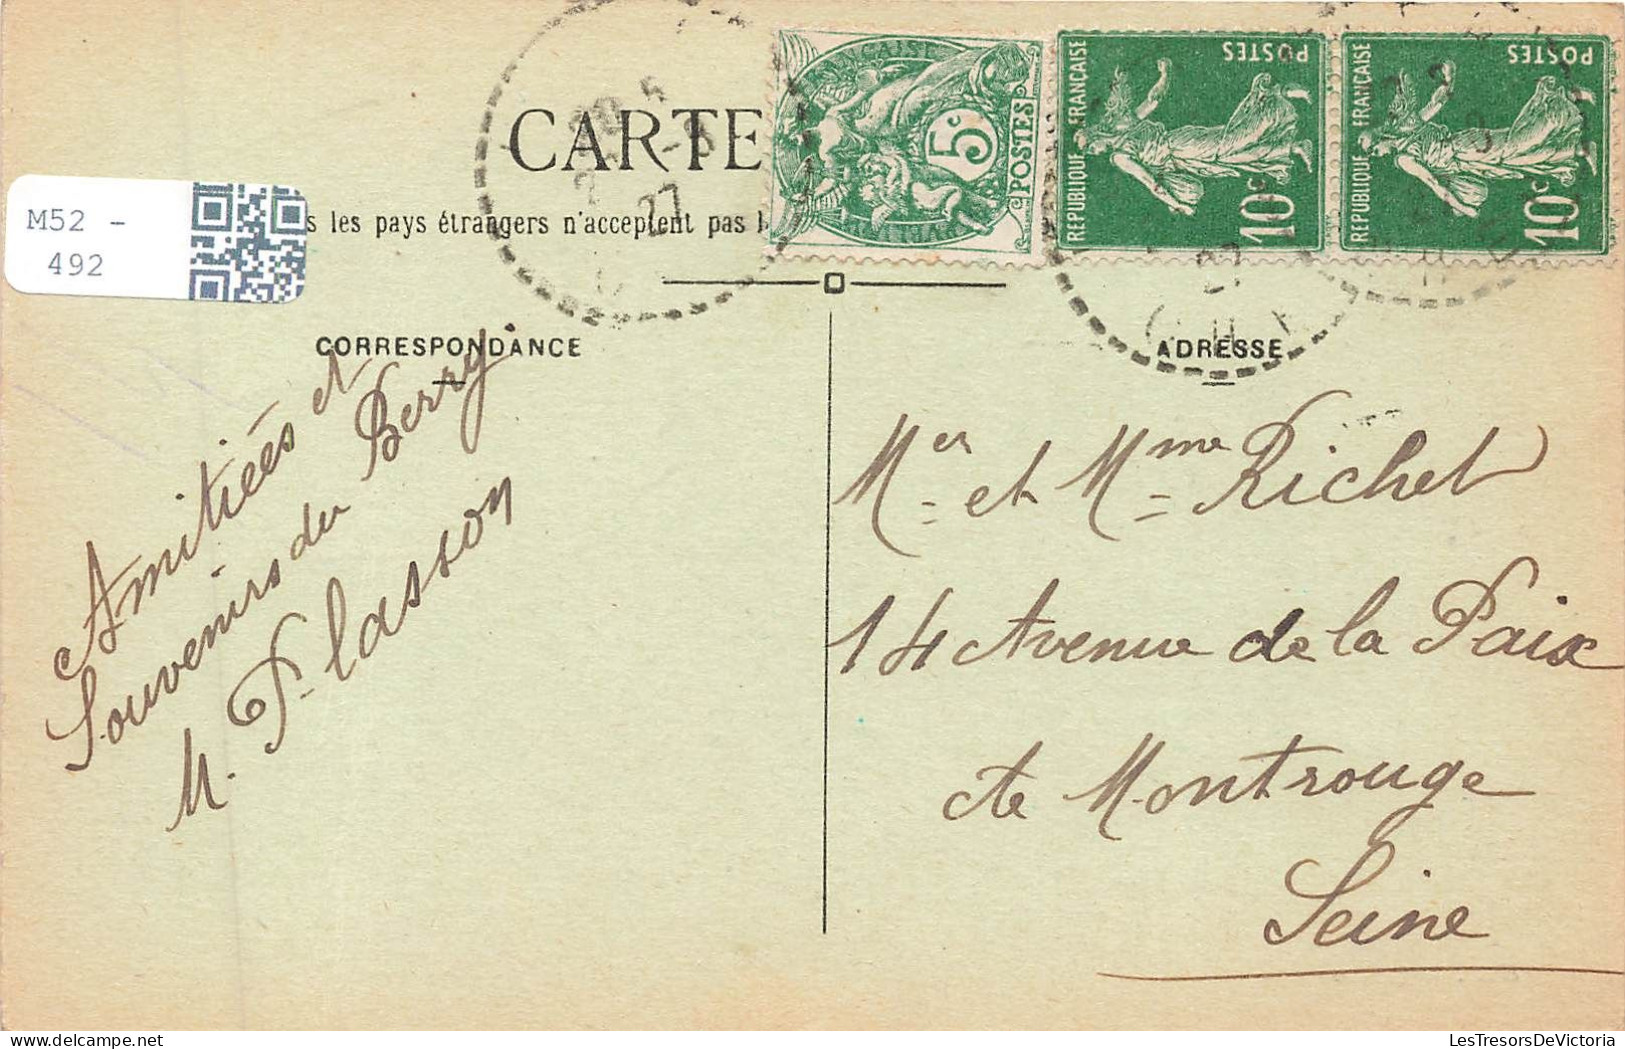 CARTE
M52 -
492
s les pays étrangers n'acceptent pas l
5c
POSTES
REPUBLIQUE FRANÇAISE
POSTES
10c
REPUBLIQUE FRANÇAISE
POSTES
10c
27
27
CORRESPONDANCE
Amitiés et
Souvenirs du Berry
M. Plasson
ADRESSE
Mer et Mme Richet
14 Avenue de la Paix
de Montrouge
Seine
LesTresorsDeVictoria.com